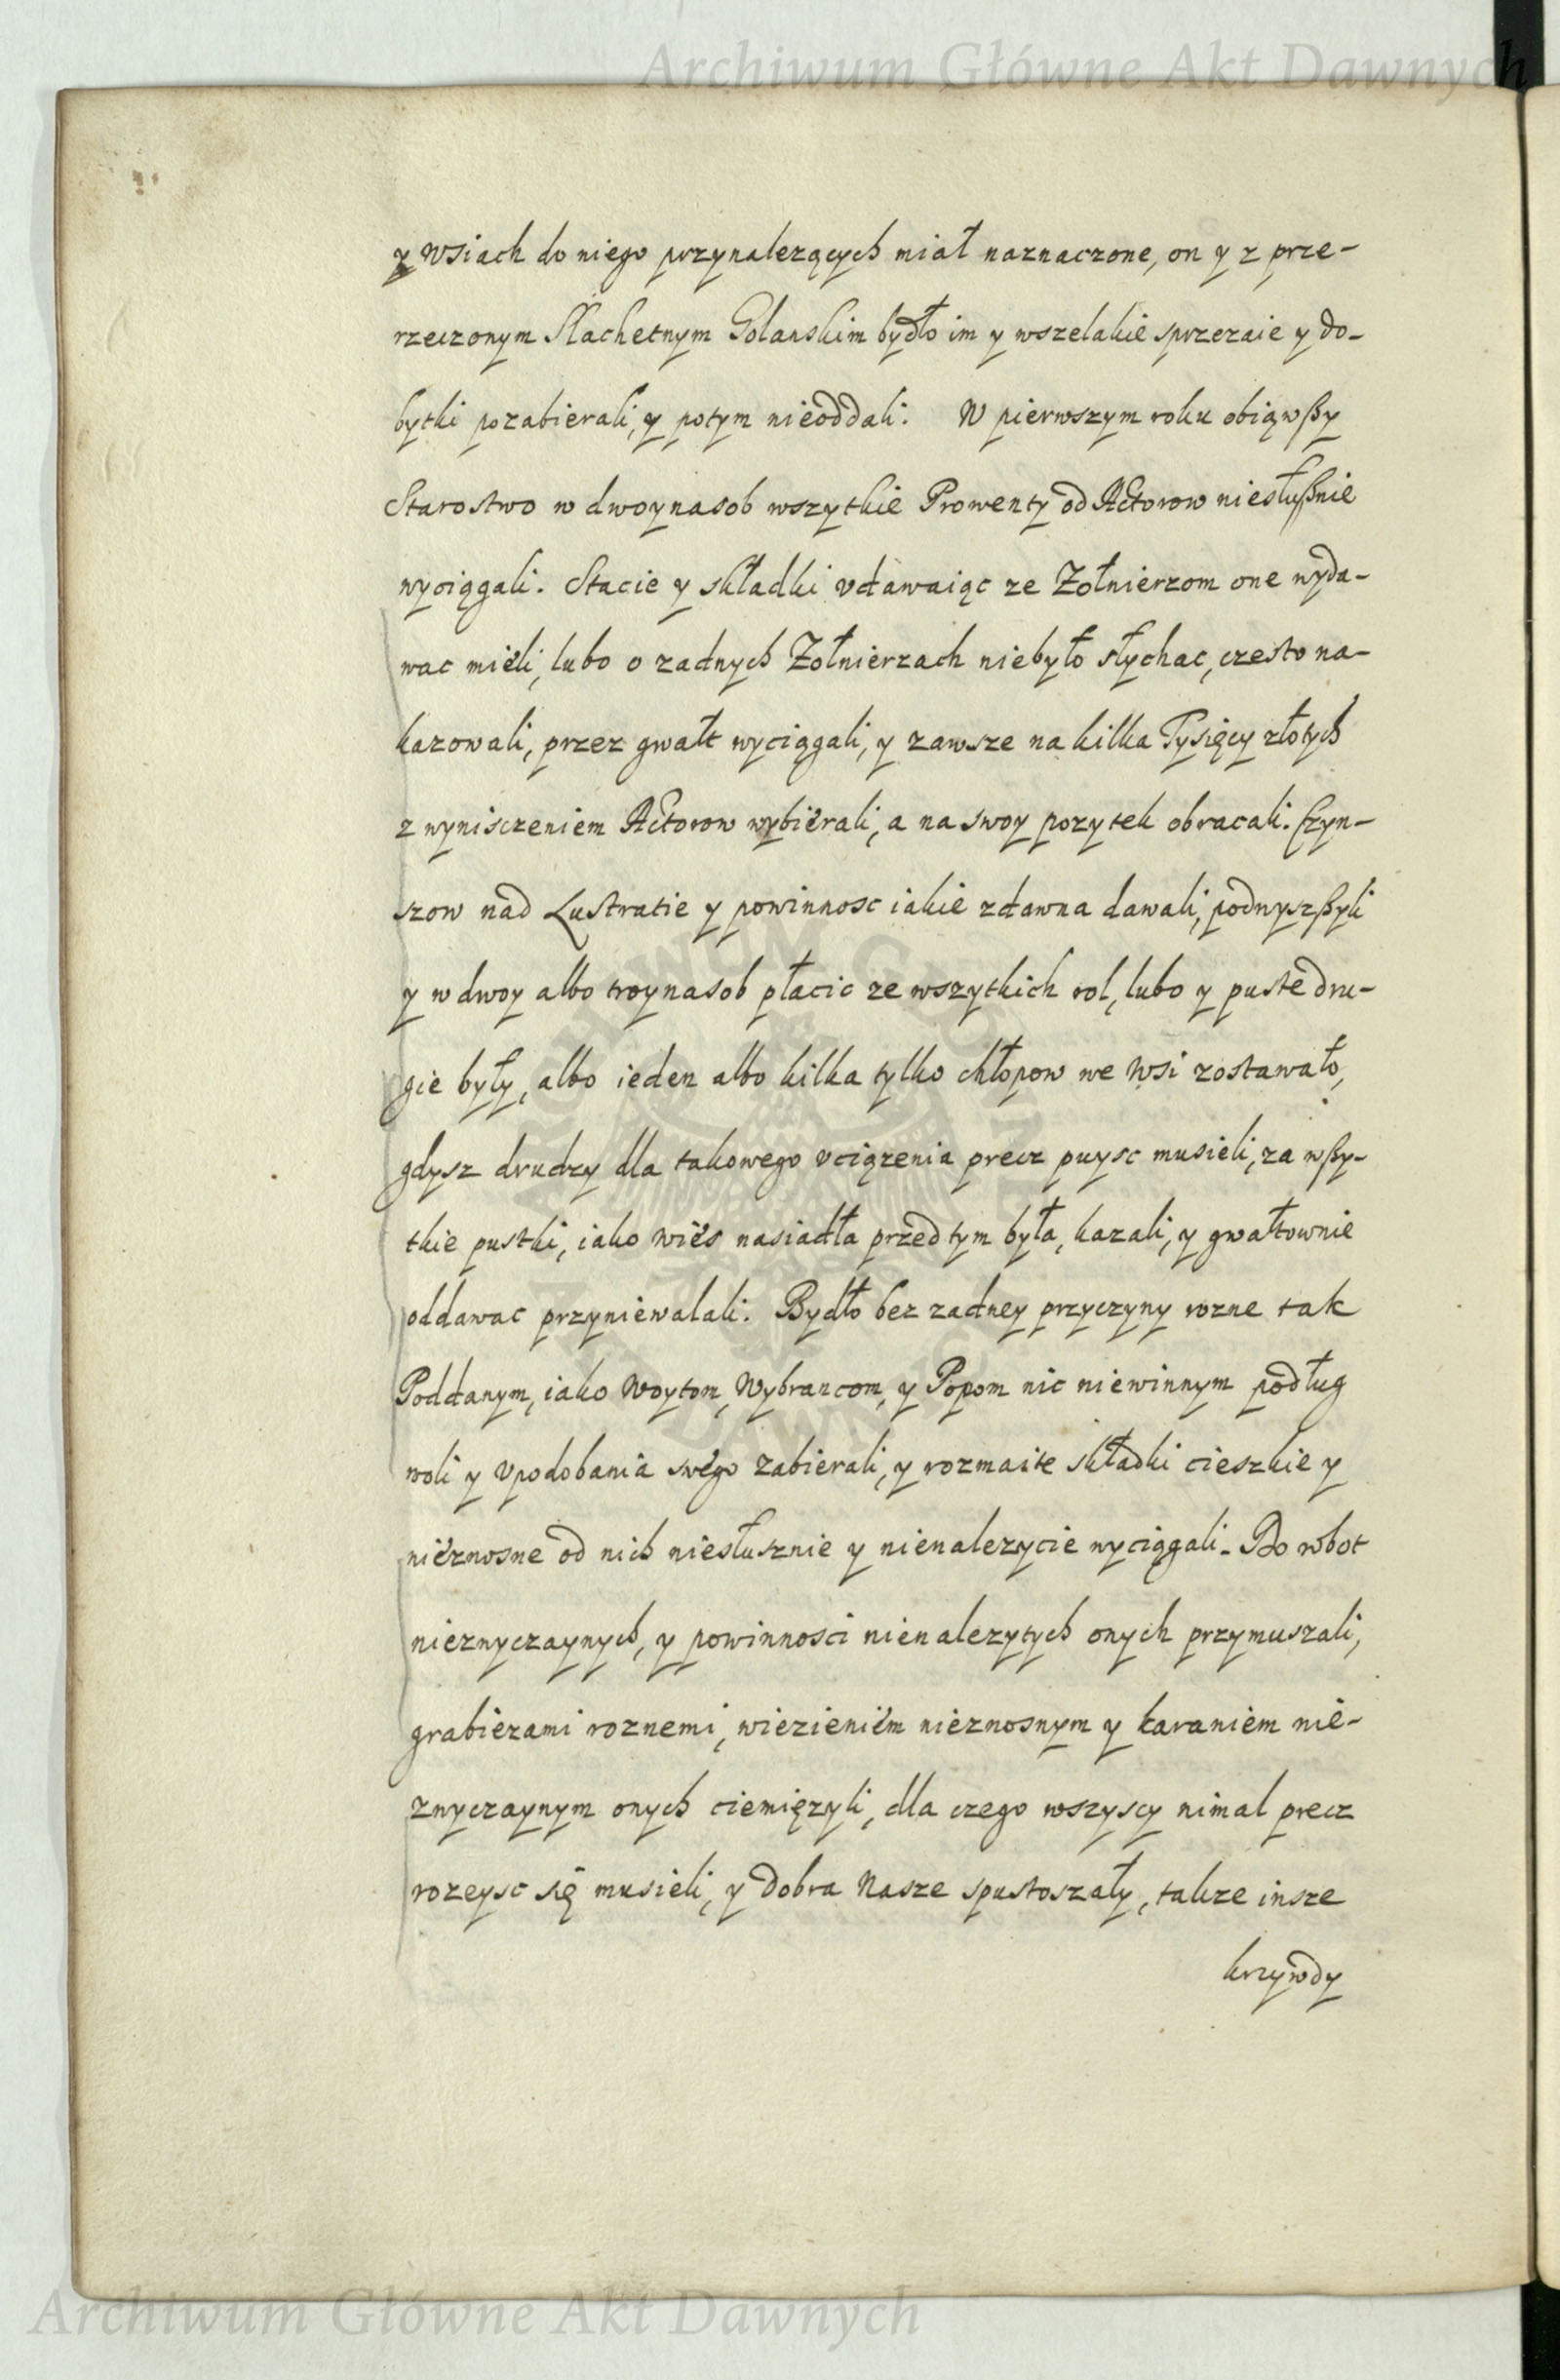 Archiwum Główne Akt Dawnych
y Wsiach do niego przynalezących miał naznaczone, on y z prze-
rzeczonym Slachetnym Golanskim bydło im y wszelakie sprzezaie y do-
bytki pozabierali, y potym nieoddali. W pierwszym roku obiąwßy
Starostwo w dwoynasob wszytkie Prowenty od Actorow niesłußnie
wyciągali. Stacie y składki vdawaiąc ze Zołnierzom one wyda-
wac mieli, lubo o zadnych Zołnierzach niebyło słychac, czesto na-
kazowali, przez gwałt wyciągali, y zawsze na kilka Tysięcy złotych
z wynisczeniem Actorow wybierali, a na swoy pozytek obracali. Czyn-
szow nad Lustratie y powinnosc iakie zdawna dawali, podwyszßyli
y w dwoy albo troynasob płacic ze wszytkich rol, lubo y puste dru-
gie były, albo ieden albo kilka tylko chłopow we Wsi zostawało,
gdysz drudzy dla takowego vciązenia precz puysc musieli, za wßy-
tkie pustki, iako wies nasiadła przedtym była, kazali, y gwałtownie
oddawac przyniewalali. Bydło bez zadney przyczyny rozne tak
Poddanym, iako Woytom, Wybrancom, y Popom nic niewinnym podług
woli y vpodobania swego zabierali, y rozmaite składki cieszkie y
nieznosne od nich niesłusznie y nienalezycie wyciągali. Do robot
niezwyczaynych, y powinnosci nienalezytych onych przymuszali,
grabiezami roznemi, wiezieniem nieznosnym y karaniem nie-
zwyczaynym onych ciemięzyli, dla czego wszyscy nimal precz
rozeysc się musieli, y dobra Nasze spustoszały, takze insze
krzywdy
Archiwum Główne Akt Dawnych